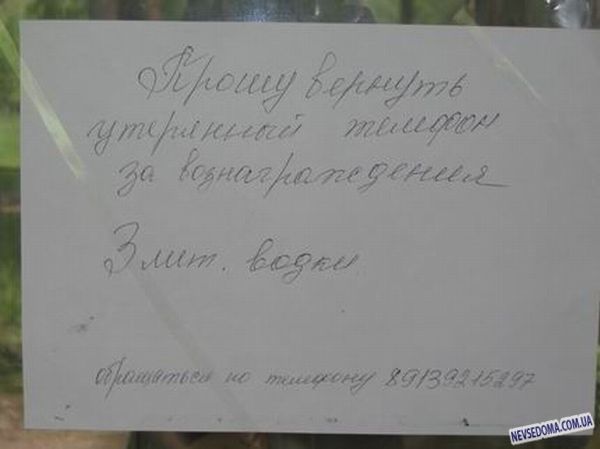 Прошу вернуть
утерянный телефон
за вознаграждения
3 лит. водки
обращаться по телефону 89139215297
NEVSEDOMA.COM.UA